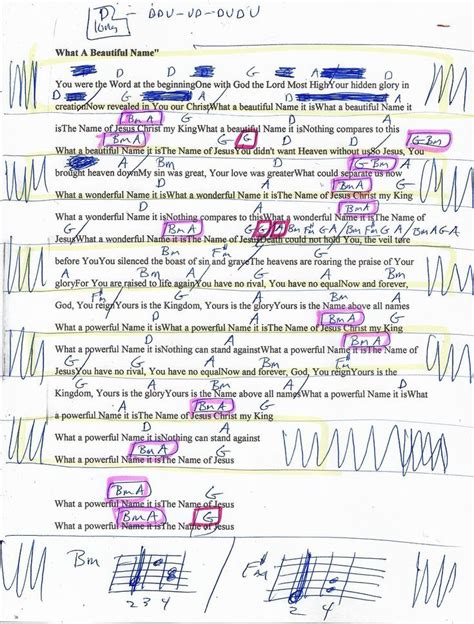 D
long
- DDU-UD-DUDU
What A Beautiful Name"
D D G A D
You were the Word at the beginningOne with God the Lord Most HighYour hidden glory in
creationNow revealed in You our ChristWhat a beautiful Name it isWhat a beautiful Name it
Bm A G D A
isThe Name of Jesus Christ my KingWhat a beautiful Name it isNothing compares to this
Bm A G G G-Bm
What a beautiful Name it isThe Name of JesusYou didn't want Heaven without usSo Jesus, You
A Bm A G Bm A
brought heaven downMy sin was great, Your love was greaterWhat could separate us now
D A Bm A G
What a wonderful Name it isWhat a wonderful Name it isThe Name of Jesus Christ my King
D A Bm A
What a wonderful Name it isNothing compares to thisWhat a wonderful Name it isThe Name of
Bm A G G A
JesusWhat a wonderful Name it isThe Name of JesusDeath could not hold You, the veil tore
before YouYou silenced the boast of sin and graveThe heavens are roaring the praise of Your
A Bm A G A
gloryFor You are raised to life againYou have no rival, You have no equalNow and forever,
God, You reignYours is the Kingdom, Yours is the gloryYours is the Name above all names
D A Bm A G
What a powerful Name it isWhat a powerful Name it isThe Name of Jesus Christ my King
D A Bm A
What a powerful Name it isNothing can stand againstWhat a powerful Name it isThe Name of
G A Bm F#m
JesusYou have no rival, You have no equalNow and forever, God, You reignYours is the
G A Bm A D
Kingdom, Yours is the gloryYours is the Name above all namesWhat a powerful Name it isWhat
A Bm A G
a powerful Name it isThe Name of Jesus Christ my King
D A
What a powerful Name it isNothing can stand against
Bm A G
What a powerful Name it isThe Name of Jesus
Bm A G
What a powerful Name it isThe Name of Jesus
Bm A G
What a powerful Name it isThe Name of Jesus
Bm F#m
2 3 4 2 4